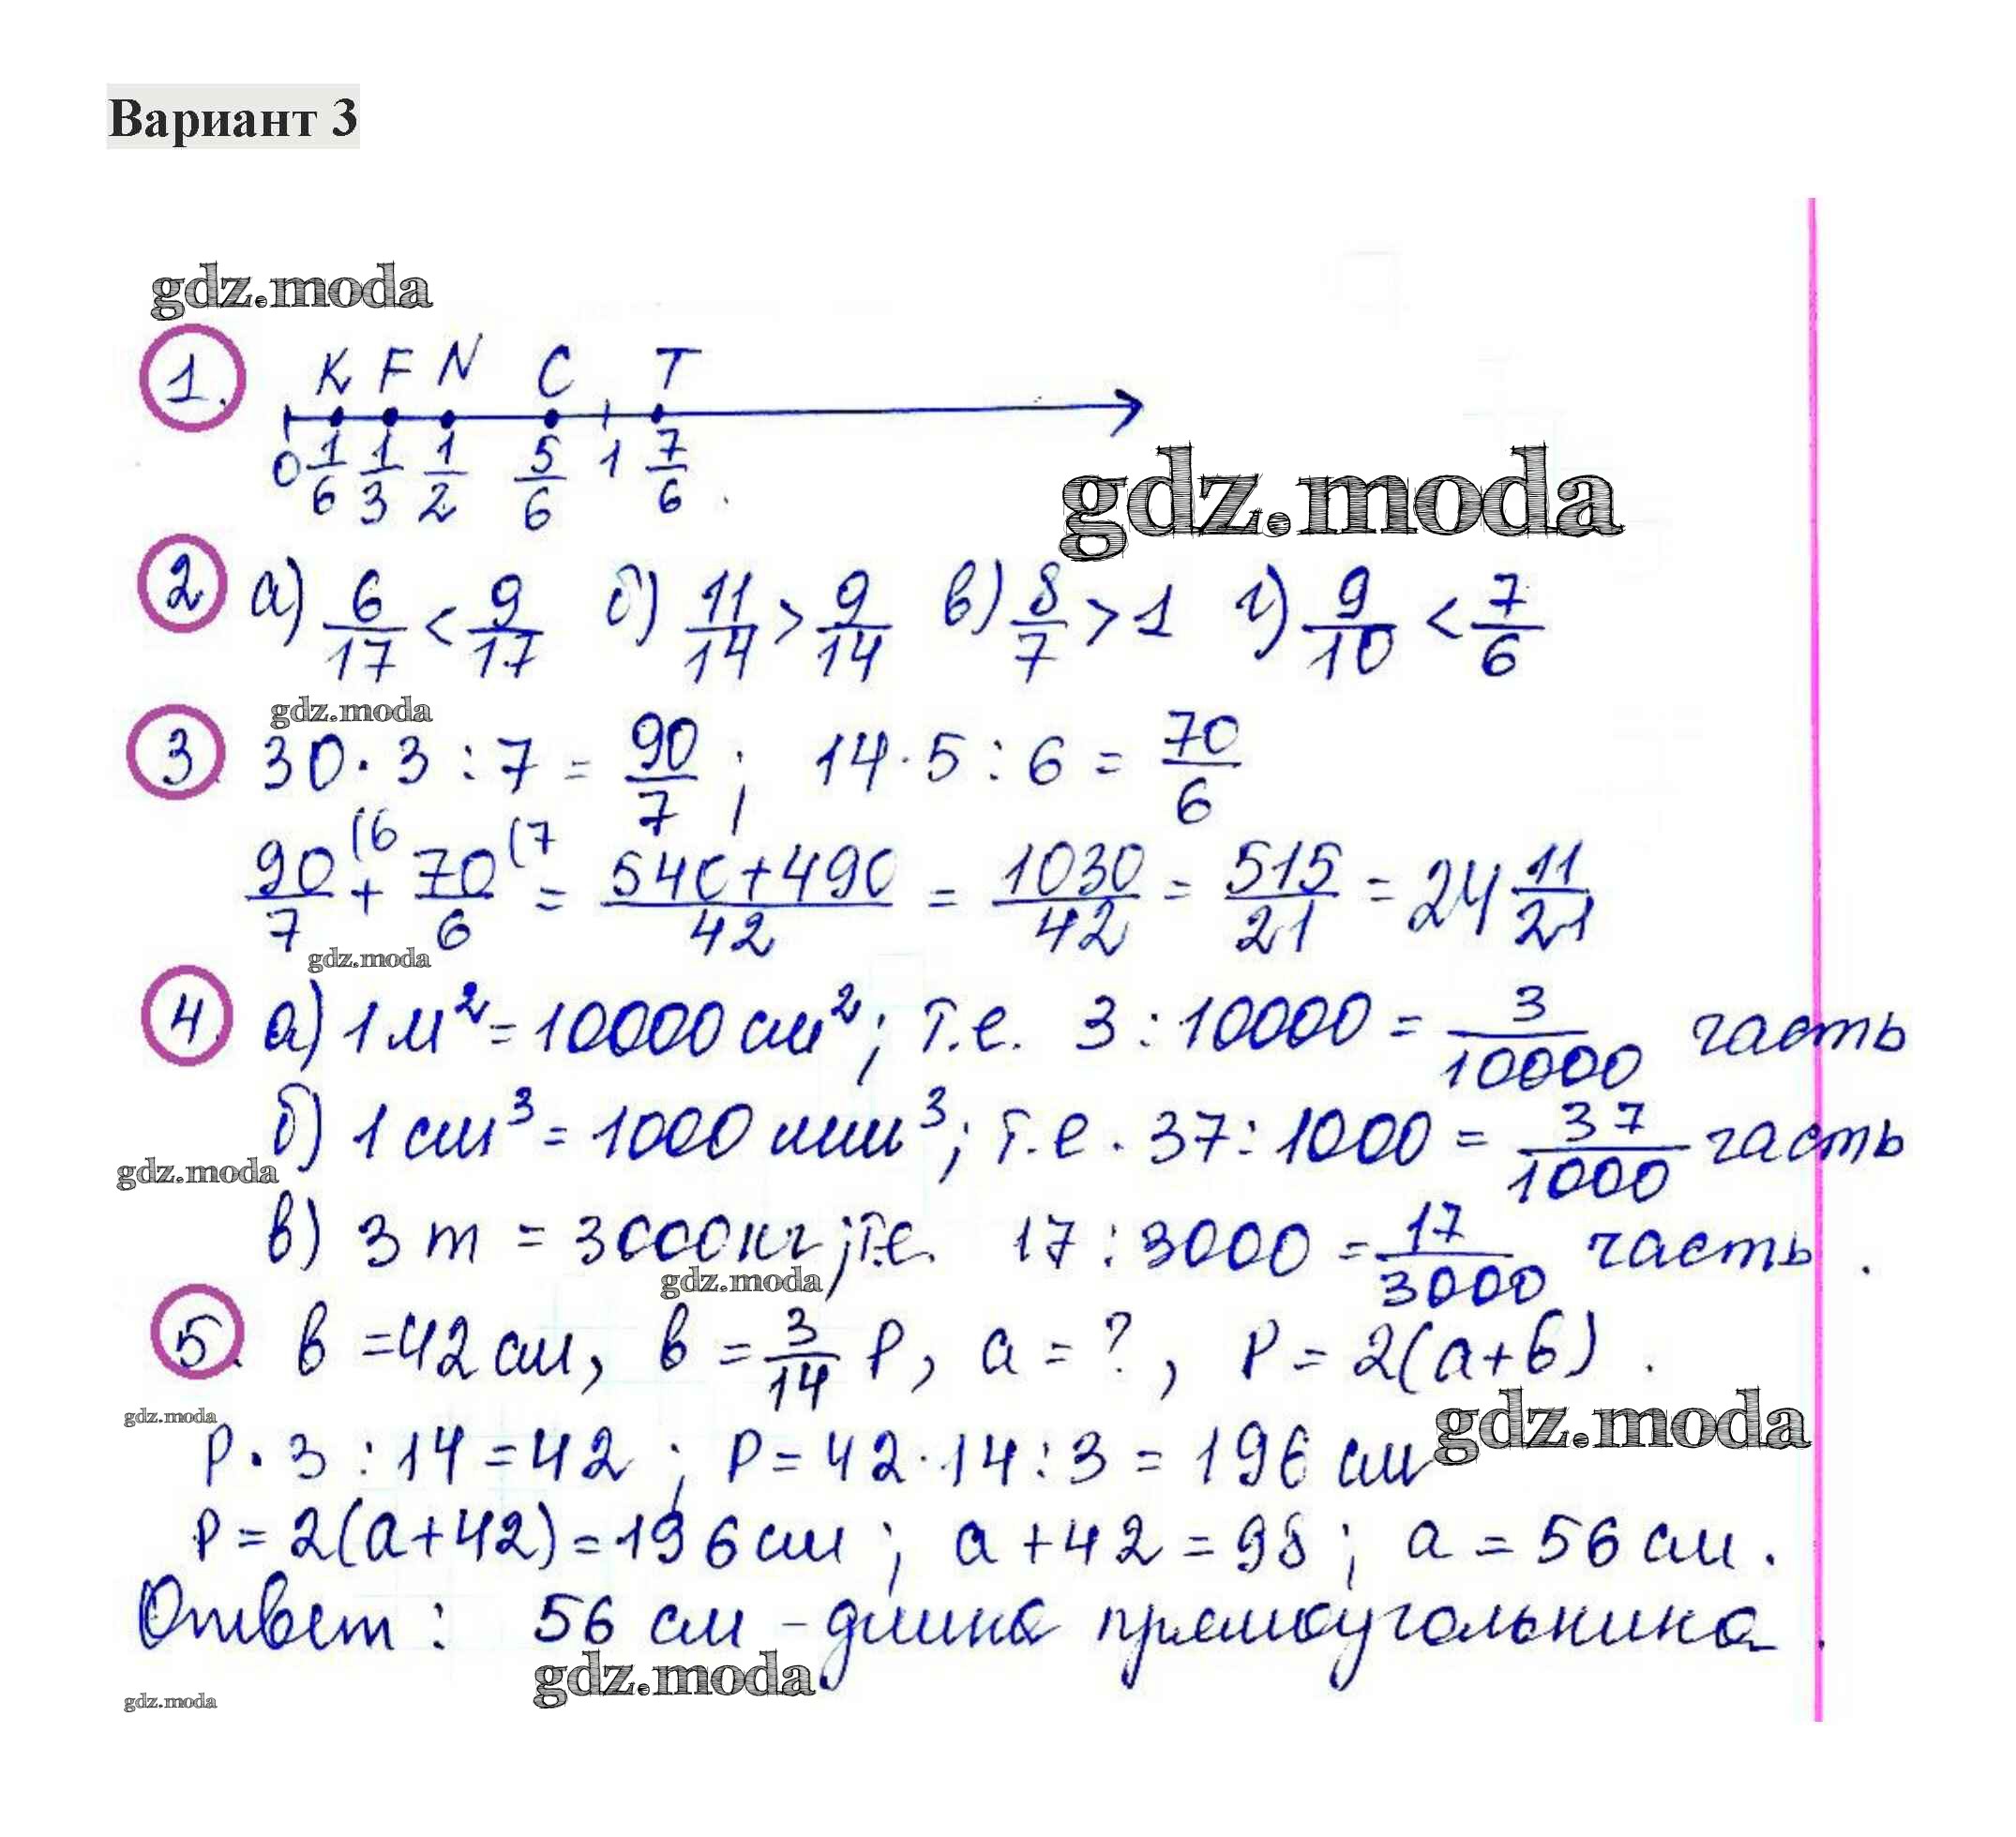 Вариант 3
gdz.moda
1. K F N C T
0 1/6 1/3 1/2 5/6 1 7/6
gdz.moda
2 а) 6/17 < 9/17 б) 11/14 > 9/14 в) 8/7 > 1 г) 9/10 < 7/6
gdz.moda
3. 30 · 3 : 7 = 90/7 ; 14 · 5 : 6 = 70/6
90/7 (6 + 70/6 (7 = 540+490/42 = 1030/42 = 515/21 = 24 11/21
gdz.moda
4. а) 1 м² = 10000 см²; т.е. 3 : 10000 = 3/10000 часть
б) 1 см³ = 1000 мм³; т.е. 37 : 1000 = 37/1000 часть
gdz.moda
в) 3 т = 3000 кг; т.е. 17 : 3000 = 17/3000 часть.
gdz.moda
5. в = 42 см, в = 3/14 P, a = ?, P = 2(a+б).
gdz.moda
gdz.moda
P · 3 : 14 = 42 ; P = 42 · 14 : 3 = 196 см
P = 2(a+42) = 196 см ; a + 42 = 98 ; a = 56 см.
Ответ: 56 см – длина прямоугольника.
gdz.moda
gdz.moda